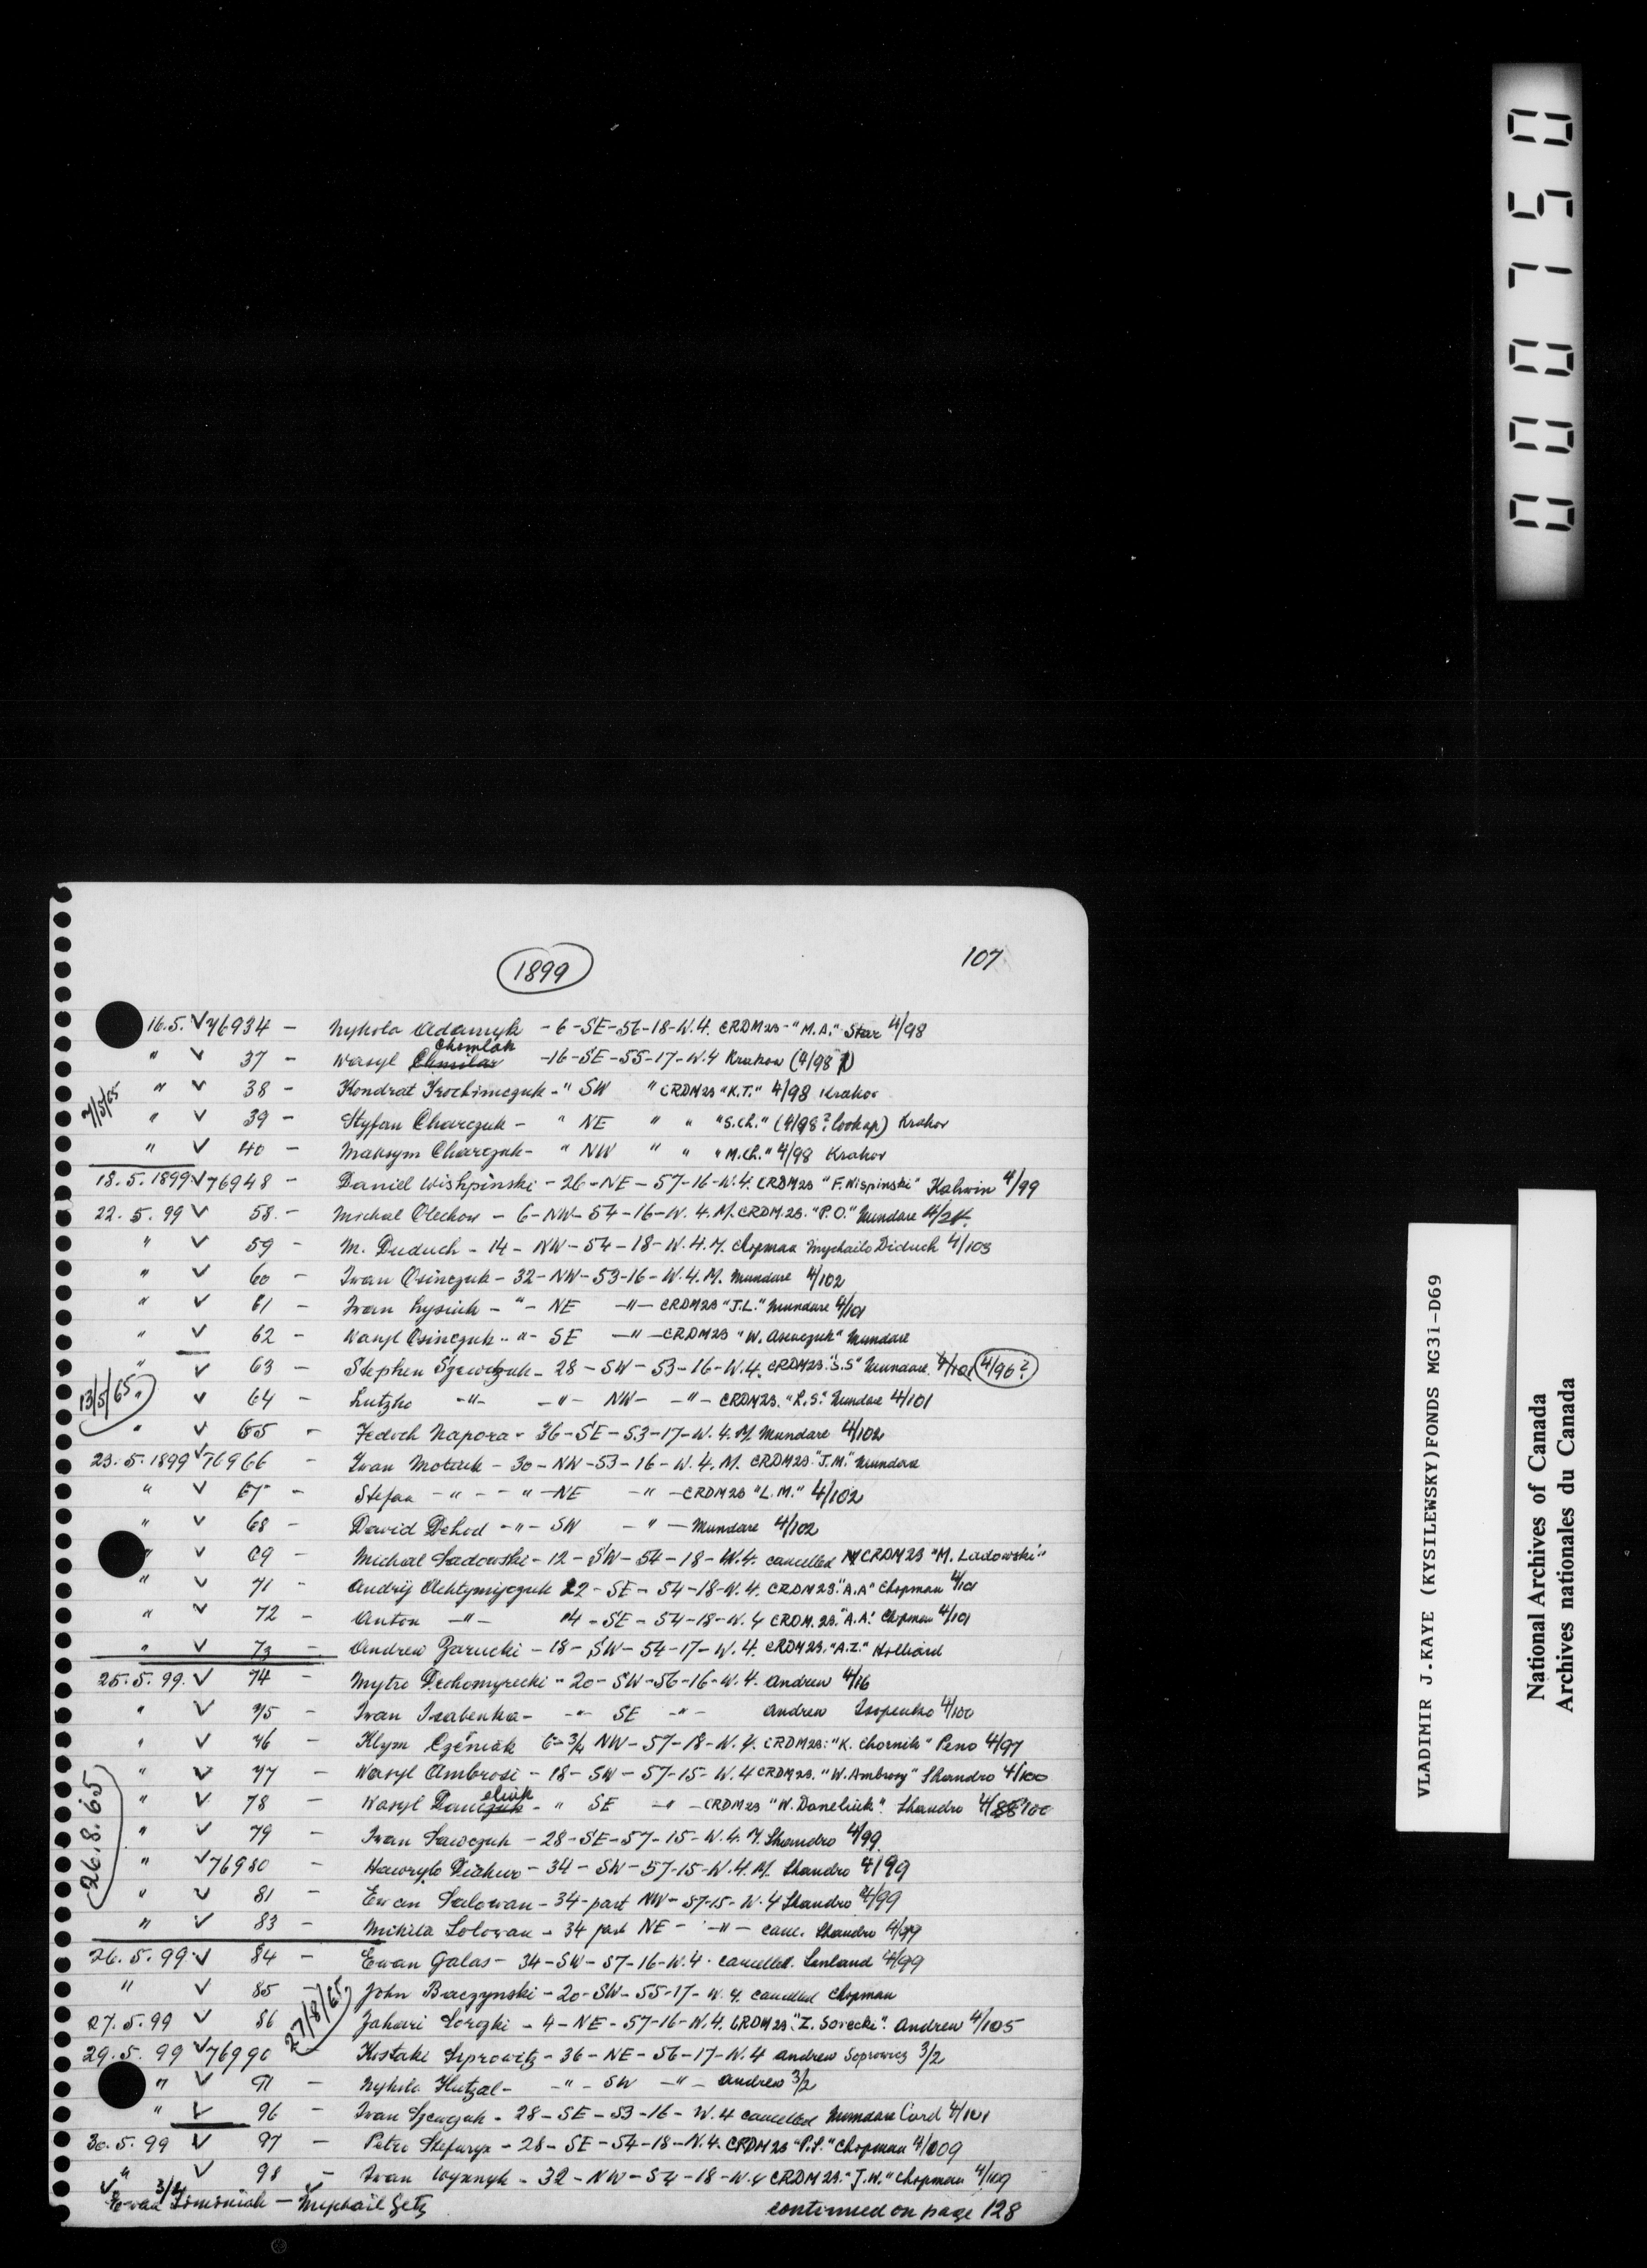 1899
107
16.5. √ 76934 - Nykola Adamyk - 6-SE-56-18-W.4. CRDM23-"M.A." Star 4/98
Chomlak
" √ 37 - Wasyl -16-SE-55-17-W.4 Krakow (4/98)
7/5/65
" √ 38 - Kondrat Trochimczuk - " SW " CRDM23 "K.T." 4/98 Krakov
" √ 39 - Styfan Charczuk - " NE " " "S.Ch." (4/98? look up) Krakov
" √ 40 - Maksym Charczuk - " NW " " "M.Ch." 4/98 Krakov
18.5.1899 √ 76948 - Daniel Wishpinski - 26-NE-57-16-W.4. CRDM23 "F. Wispinski" Kahwin 4/99
22.5.99 √ 58. - Michal Olechow - 6-NW-54-16-W.4.M. CRDM.23. "P.O." Mundare
" √ 59 - M. Duduch - 14-NW-54-18-W.4.M. Chopman Mychailo Diduch 4/103
" √ 60 - Iwan Osinczuk - 32-NW-53-16-W.4.M. Mundare 4/102
" √ 61 - Iwan Lysiuk - " - NE -"- CRDM23 "J.L." Mundare 4/101
" √ 62 - Wasyl Osinczuk - " - SE -"- CRDM23 "W. Asenczuk" Mundare
" √ 63 - Stephen Szewczuk - 28-SW-53-16-W.4. CRDM23. "S.S" Mundare. 4/101 4/96?
13/5/65
" √ 64 - Lutzko -"- -"- NW- -"- CRDM23. "L.S." Mundare 4/101
" √ 65 - Fedoch Napora - 36-SE-53-17-W.4.M. Mundare 4/102
23.5.1899 √ 76966 - Iwan Motruk - 30-NW-53-16-W.4.M. CRDM23. "J.M." Mundare
" √ 67 - Stefan -"- - " -NE -"- CRDM23 "L.M." 4/102
" √ 68 - Dawid Dehod -"- SW -"- Mundare 4/102
" √ 69 - Michal Sadowski - 12-SW-54-18-W.4. cancelled CRDM23 "M. Ladowski"
" √ 71 - Andrij Achtymijczuk 22-SE-54-18-W.4. CRDM23. "A.A" Chopman 4/101
" √ 72 - Anton -"- 14-SE-54-18-W.4 CRDM.23. "A.A." Chopman 4/101
" √ 73 - Andrew Zarucki - 18-SW-54-17-W.4. CRDM23. "A.Z." Holhard
25.5.99. √ 74 - Mytro Dechomyrecki - 20-SW-56-16-W.4. Andrew 4/16
" √ 75 - Iwan Isabenka - -"- SE -"- Andrew Isopenko 4/100
" √ 76 - Klym Czerniak 6-3/4 NW-57-18-W.4. CRDM23: "K. Chornik" Peno 4/97
" √ 77 - Wasyl Ambrosi - 18-SW-57-15-W.4 CRDM23. "W. Ambrosy" Shandro 4/100
26.8.65
" √ 78 - Wasyl - " SE -"- CRDM23 "W. Daneliuk". Shandro 4/100
" √ 79 - Iwan Sawczuk - 28-SE-57-15-W.4.M. Shandro 4/99.
" √ 76980 - Hawrylo Diakuw - 34-SW-57-15-W.4.M. Shandro 4/99
" √ 81 - Ewan Salowan - 34-part NW-57-15-W.4 Shandro 4/99
" √ 83 - Mikita Solowan - 34 part NE - -"- canc. Shandro 4/99
26.5.99 √ 84 - Ewan Galas - 34-SW-57-16-W.4. cancelled. Sunland 4/99
" √ 85 - John Baczynski - 20-SW-55-17-W.4. cancelled Chopman
27/8/65
27.5.99 √ 86 - Jahari Sorozki - 4-NE-57-16-W.4. CRDM23. "Z. Sorecki". Andrew 4/105
29.5.99 √ 76990 Kostaki Soprowitz - 36-NE-56-17-W.4 Andrew Soprowicz 3/2
" √ 91 - Nykola Hutzal - -"- SW -"- Andrew 3/2
" √ 96 - Iwan Szewczuk - 28-SE-53-16-W.4 cancelled Mundare Card 4/101
30.5.99 √ 97 - Petro Stefuryn - 28-SE-54-18-W.4. CRDM23 "P.S." Chopman 4/109
" √ 98 - Iwan Wynnyk - 32-NW-54-18-W.4 CRDM23. "J.W." Chopman 4/109
3/2
√ Simeniak - Mychail Getz
continued on page 128
000750
VLADIMIR J.KAYE (KYSILEWSKY)FONDS MG31-D69
National Archives of Canada
Archives nationales du Canada